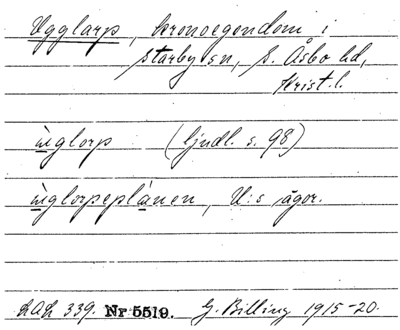 Ugglarp, kronoegendom i
Starby sn, S. Åsbo hd,
Krist. l.
ùglorp (ljudl. s. 98)
ùglorpeplánen, U:s ägor.
LAL 339. Nr 5519. G. Billing 1915-20.